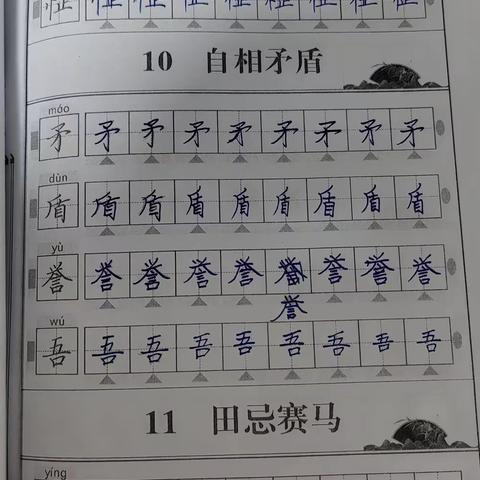 怔 怔 怔 怔 怔 怔 怔 怔 怔
10 自相矛盾
máo
矛 矛 矛 矛 矛 矛 矛 矛 矛
dùn
盾 盾 盾 盾 盾 盾 盾 盾 盾
yù
誉 誉 誉 誉 誉 誉 誉 誉 誉
誉
wú
吾 吾 吾 吾 吾 吾 吾 吾 吾
11 田忌赛马
yíng